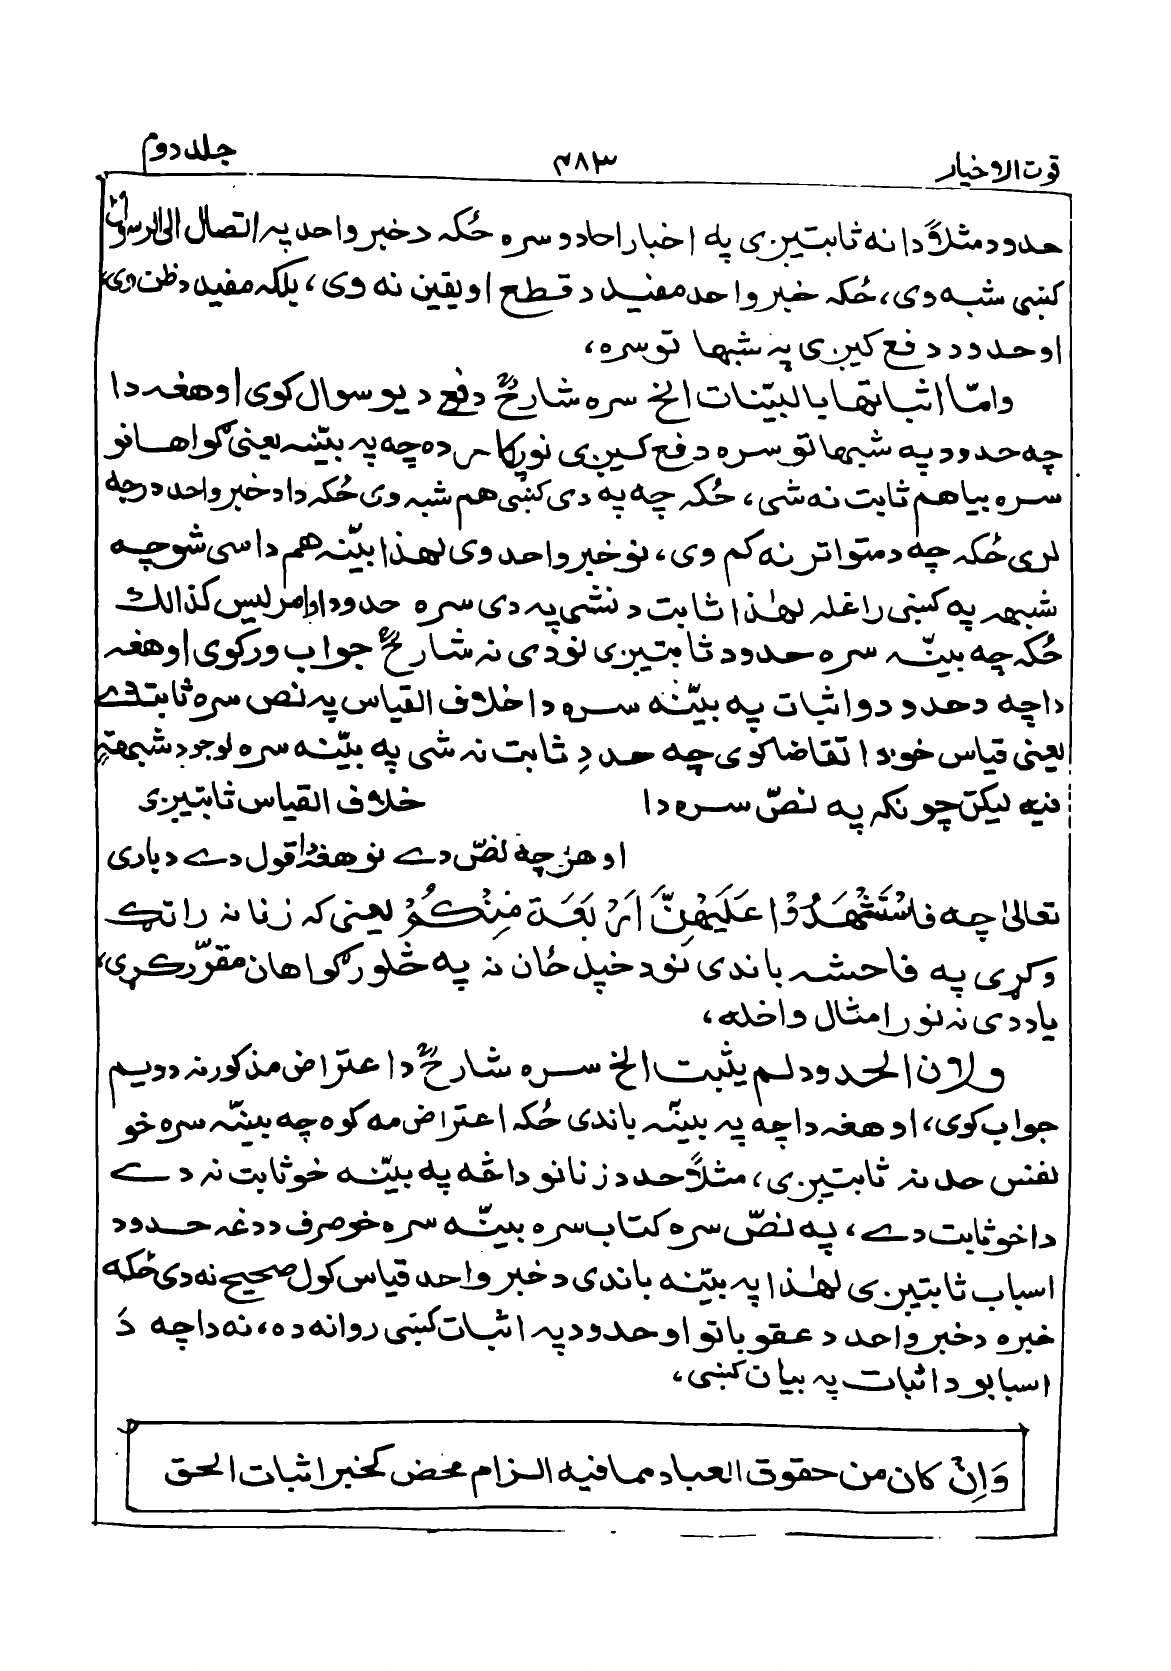 قوت الاخیار ۴۸۳ جلد دوم
حدود مثلاً دا نه ثابتیږی په اخبار احادو سره ځکه د خبر واحد په اتصال الی الرسول
کښی شبه وی، ځکه خبر واحد مفید د قطع او یقین نه وی، بلکه مفید د ظن دی،
او حدود دفع کیږی په شبهاتو سره،
واما اثباتها بالبیّنات الخ سره شارحؒ دفع د یو سوال کوی او هغه دا
چه حدود په شبهاتو سره دفع کیږی نو پکار ده چه په بیّنه یعنی گواهانو
سره بیا هم ثابت نه شی، ځکه چه په دی کښی هم شبه وی ځکه دا د خبر واحد درجه
لری ځکه چه د متواتر نه کم وی، نو خبر واحد وی لهذا بیّنه هم داسی شو چه
شبهه په کښی راغله لهٰذا ثابت د نشی په دی سره حدود او الامر لیس کذالک
ځکه چه بیّنه سره حدود ثابتیږی نو دی نه شارحؒ جواب ورکوی او هغه
داچه د حدودو اثبات په بیّنه سره دا خلاف القیاس په نص سره ثابت دے
یعنی قیاس خو دا تقاضا کوی چه حد دِ ثابت نه شی په بیّنه سره لوجود شبهة
فیه لیکن چونکه په نصّ سره دا خلاف القیاس ثابتیږی
او هر چه نصّ دے نو هغه دا قول دے د باری
تعالیٰ چه فَاسْتَشْهِدُوْا عَلَیْهِنَّ اَرْبَعَةً مِنْكُمْ یعنی که زنا نه راتګ
وکړی په فاحشه باندی نو د خپل ځان نه په څلور گواهان مقرّر کړی،
یا د دی نه نور امثال واخله،
ولان الحدود لم یثبت الخ سره شارحؒ د اعتراض مذکور نه دویم
جواب کوی، او هغه داچه په بیّنه باندی ځکه اعتراض مه کوه چه بیّنه سره خو
نفس حد نه ثابتیږی، مثلاً حد د زنا نو داغه په بیّنه خو ثابت نه دے
دا خو ثابت دے، په نصّ سره کتاب سره بیّنه سره خو صرف د دغه حدود
اسباب ثابتیږی لهٰذا په بیّنه باندی د خبر واحد قیاس کول صحیح نه دی ځکه
خبره د خبر واحد د عقوباتو او حدود په اثبات کښی روانه ده، نه داچه دَ
اسبابو د اثبات په بیان کښی،
وَاِنْ کان من حقوق العباد مما فیه الزام محض کخبر اثبات الحق